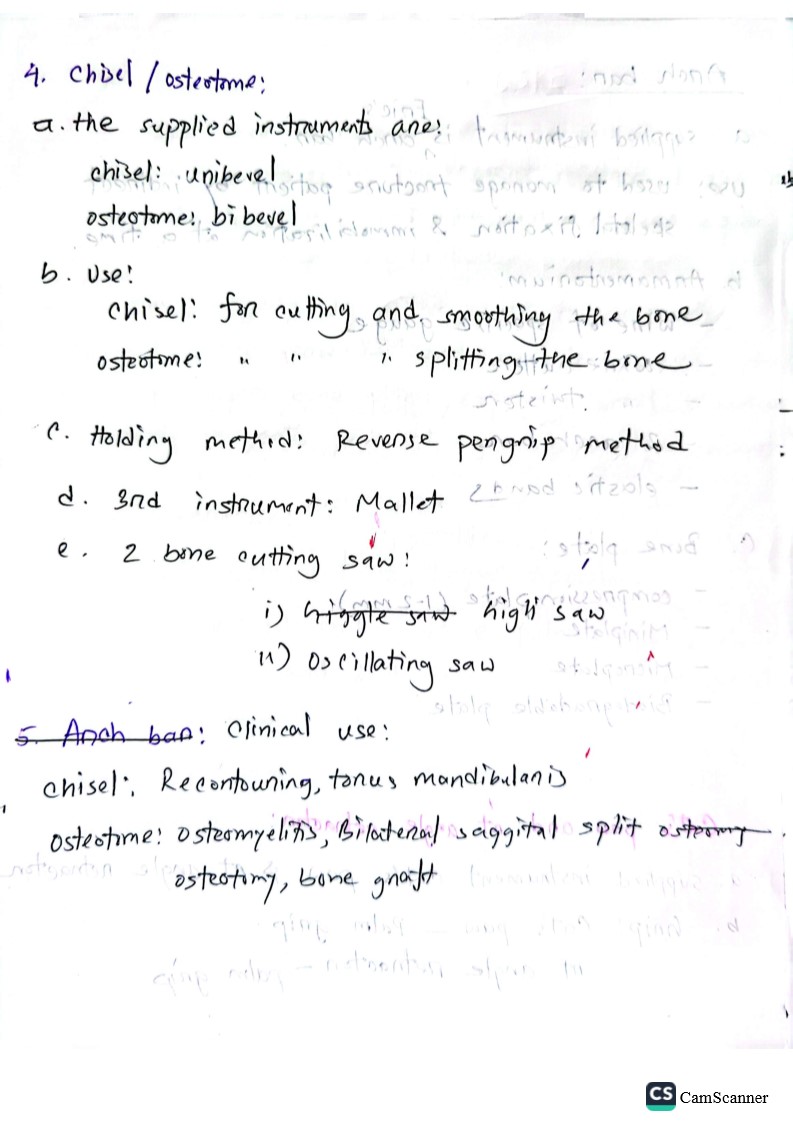 4. Chisel / osteotome:
a. the supplied instruments are:
chisel: unibevel
osteotome: bi bevel
b. Use:
Chisel: for cutting and smoothing the bone
osteotome: " " " splitting the bone
c. Holding method: Reverse pengrip method
d. 3rd instrument: Mallet
e. 2 bone cutting saw:
i) higgle saw high saw
ii) oscillating saw
5. Arch bar: Clinical use:
chisel: Recontouring, torus mandibularis
osteotome: osteomyelitis, Bilateral saggital split osteomy
osteotomy, bone graft
CS CamScanner